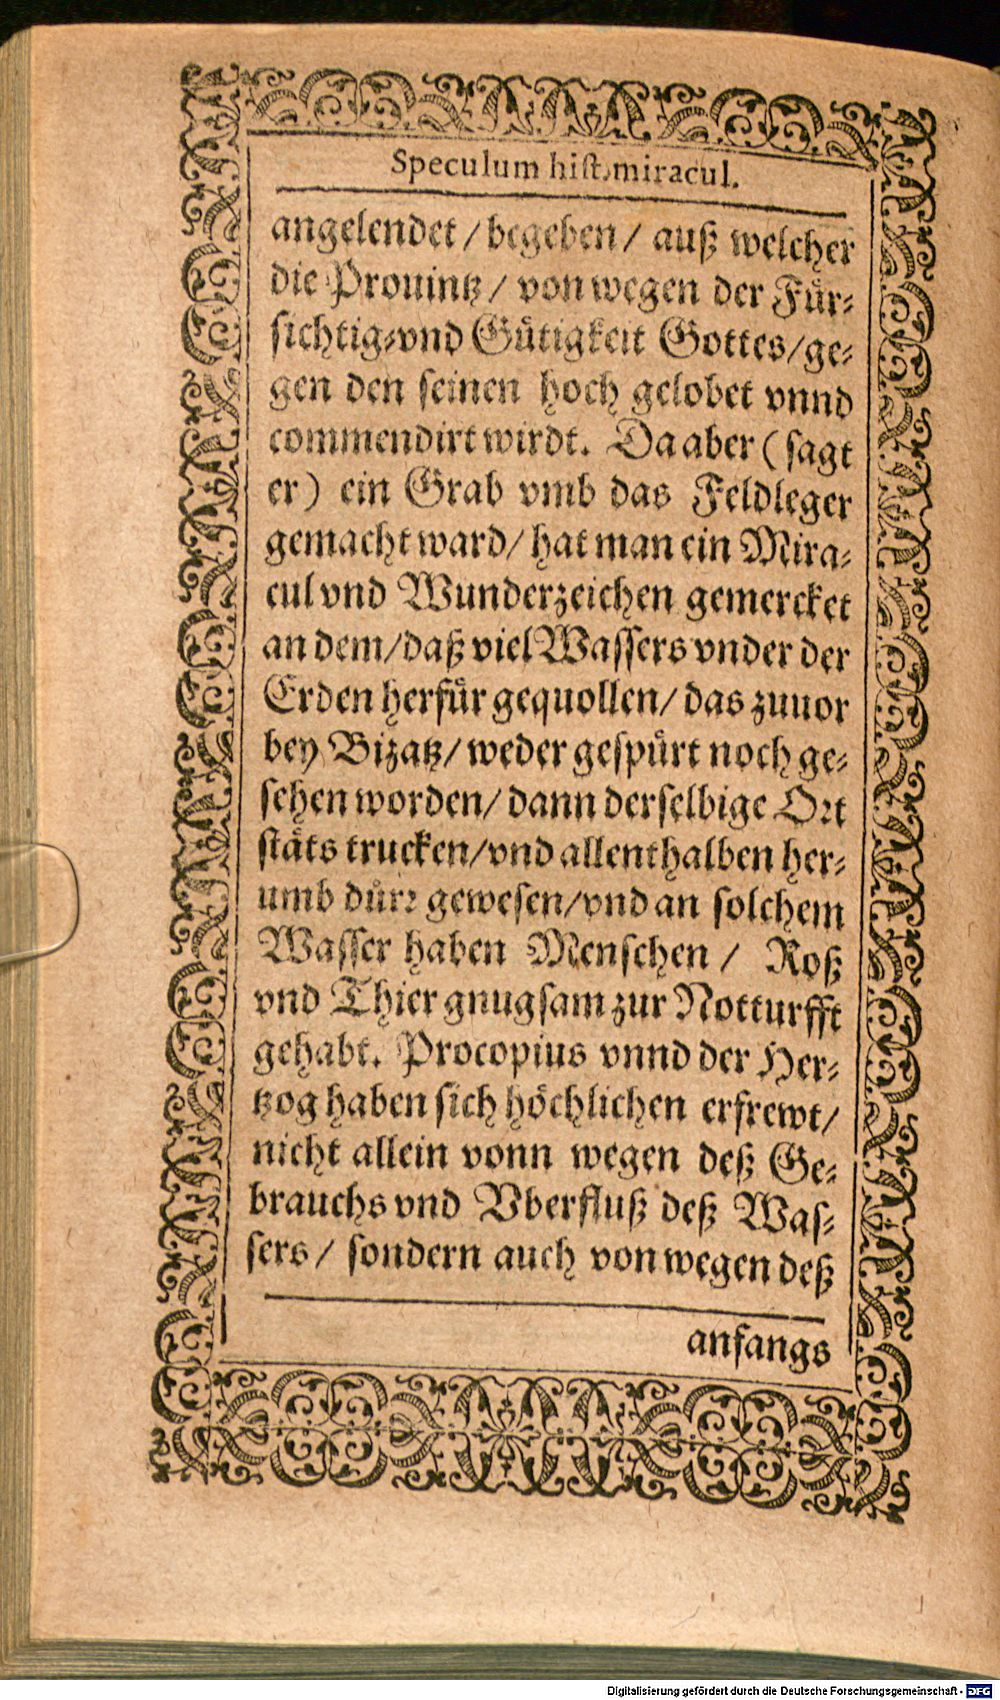 Speculum hist. miracul.
angelendet / begeben / auß welcher
die Prouintz / von wegen der Für-
sichtig-vnd Gütigkeit Gottes / ge-
gen den seinen hoch gelobet vnnd
commendirt wirdt. Da aber ( sagt
er ) ein Grab vmb das Feldleger
gemacht ward / hat man ein Mira-
cul vnd Wunderzeichen gemercket
an dem / daß viel Wassers vnder der
Erden herfür gequollen / das zuuor
bey Bizatz / weder gespürt noch ge-
sehen worden / dann derselbige Ort
stäts trucken / vnd allenthalben her-
umb dürr gewesen / vnd an solchem
Wasser haben Menschen / Roß
vnd Thier gnugsam zur Notturfft
gehabt. Procopius vnnd der Her-
tzog haben sich höchlichen erfrewt /
nicht allein vonn wegen deß Ge-
brauchs vnd Vberfluß deß Was-
sers / sondern auch von wegen deß
anfangs
Digitalisierung gefördert durch die Deutsche Forschungsgemeinschaft - DFG